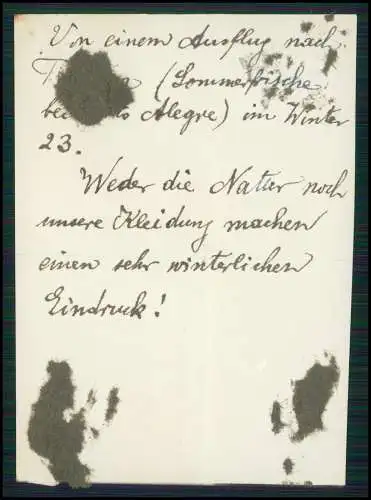 Von einem Ausflug nach
(Sommerfrische
Alegre) im Winter
23.
Weder die Natter noch
unsere Kleidung machen
einen sehr winterlichen
Eindruck!